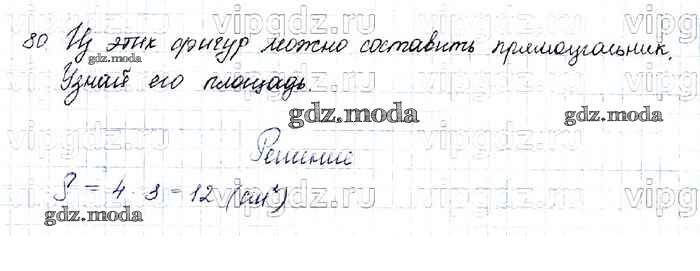 vipgdz.ru vipgdz.ru vipg
80 Из этих фигур можно составить прямоугольник.
gdz.moda
Узнай его площадь.
vipgdz.ru vipgdz.ru vipg
gdz.moda gdz.moda
vipgdz.ru vipgdz.ru vipg
Решение
vipgdz.ru vipgdz.ru vipg
S = 4 · 3 = 12 (см²)
gdz.moda gdz.moda